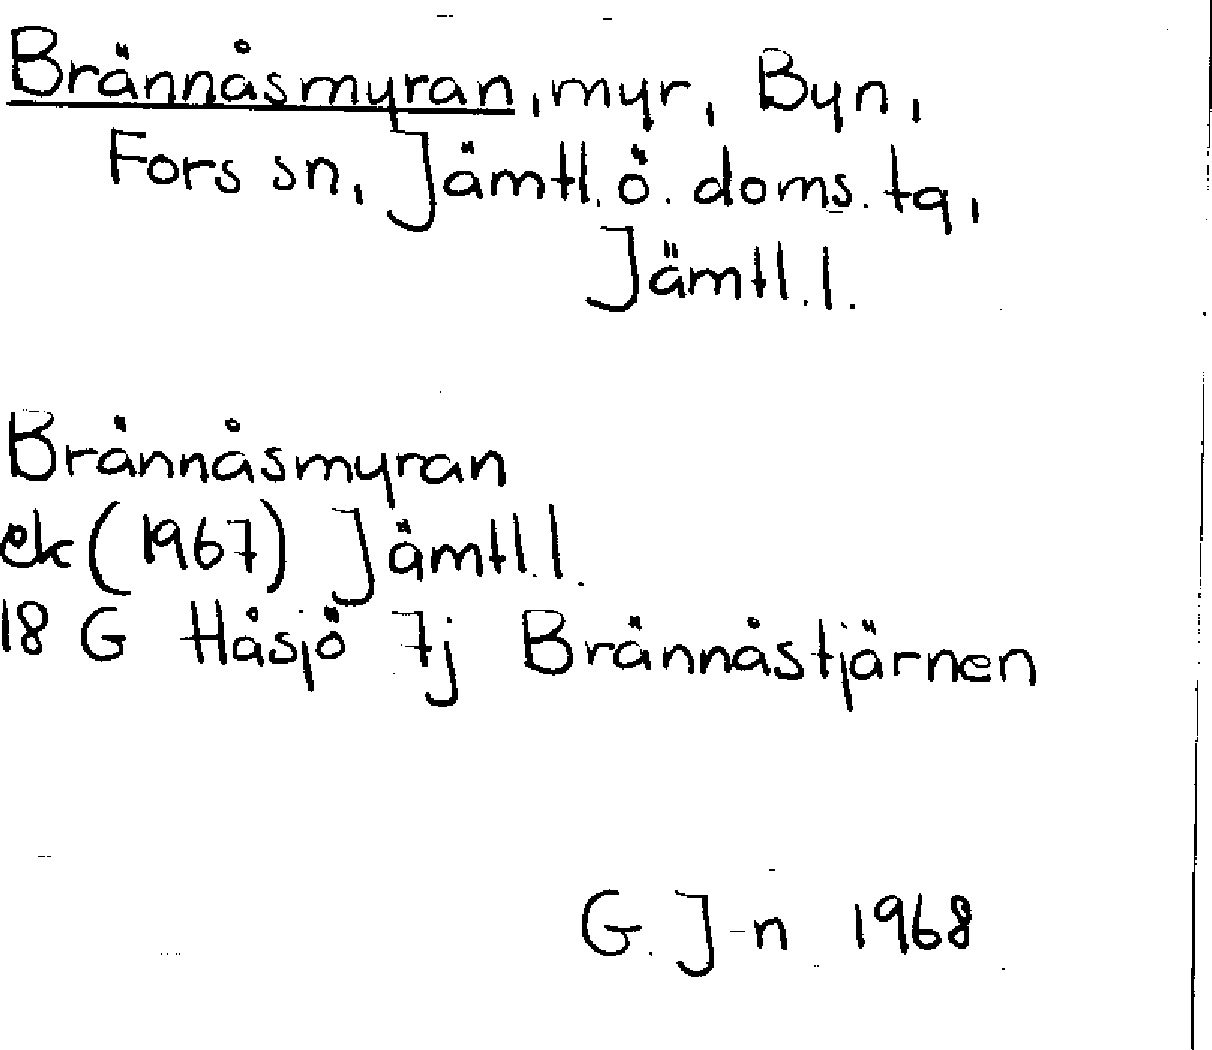 Brännåsmyran, myr, Byn,
Fors sn, Jämtl. ö. doms. tg,
Jämtl. l.
Brännåsmyran
ek (1967) Jämtl. l.
18 G Håsjö 7j Brännåstjärnen
G. J-n 1968